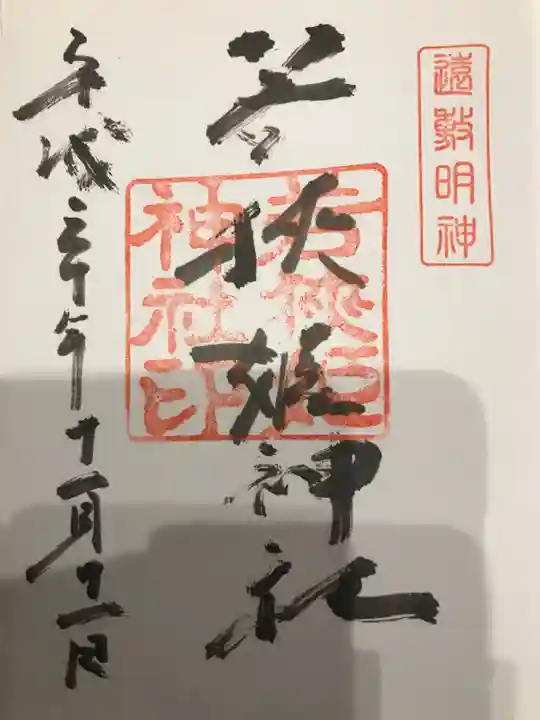 遠敷明神
若狭姫神社
若狭姫神社印
平成三十年十一月廿一日